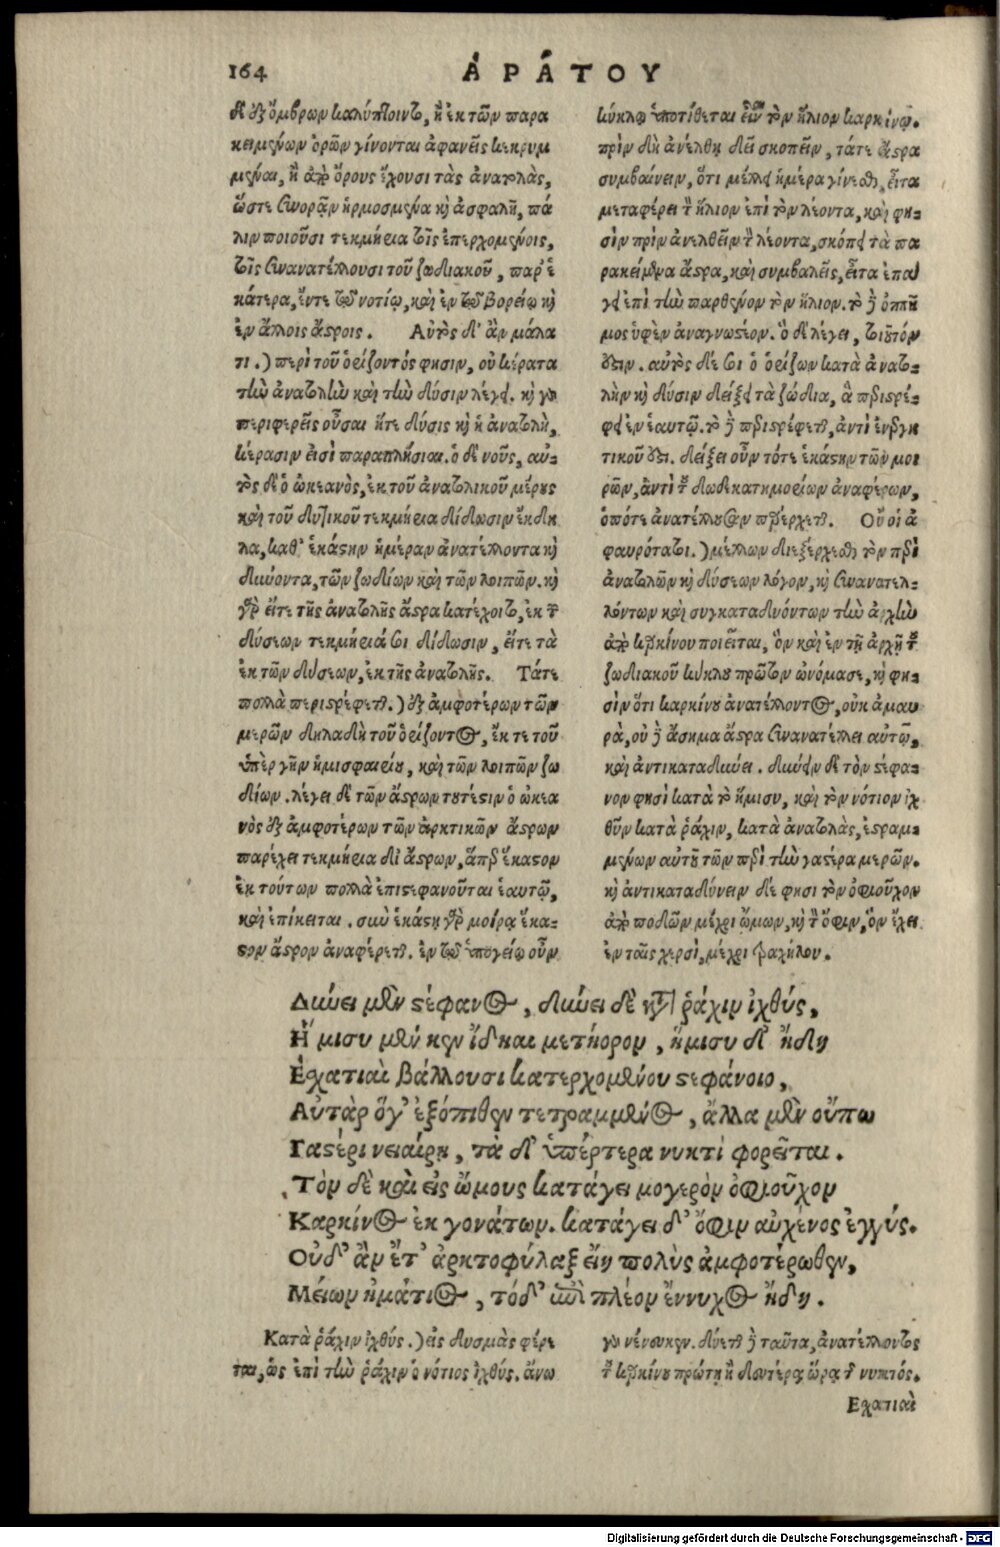 164
ΑΡΑΤΟΥ
δὲ ἐξ ὄμβρων καλύπτοιντο, ἢ ἐκ τῶν παρα
κειμένων ὀρῶν γίνονται ἀφανεῖς κεκρυμ
μέναι, ἢ ἀπὸ ὄρους ἔχουσι τὰς ἀνατολὰς,
ὥστε συνορᾷν ἡρμοσμένα καὶ ἀσφαλῆ, πά
λιν ποιοῦσι τεκμήρια τοῖς ἐπερχομένοις,
τοῖς συνανατέλλουσι τοῦ ζωδιακοῦ, παρ' ἑ
κάτερα, ἔντε τῷ νοτίῳ, καὶ ἐν τῷ βορείῳ καὶ
ἐν ἄλλοις ἄστροις. Αὐτὸς δ' ἂν μάλα
τι.) περὶ τοῦ ὁρίζοντός φησιν, οὐ κέρατα
τὴν ἀνατολὴν καὶ τὴν δύσιν λέγει. καὶ γὰρ
περιφερεῖς οὖσαι ἥτε δύσις καὶ ἡ ἀνατολὴ,
κέρασιν εἰσὶ παραπλήσιαι. ὁ δὲ νοῦς, αὐ-
τὸς δὲ ὁ ὠκεανὸς, ἐκ τοῦ ἀνατολικοῦ μέρους
καὶ τοῦ δυτικοῦ τεκμήρια δίδωσιν ἔκδη
λα, καθ' ἑκάστην ἡμέραν ἀνατέλλοντα καὶ
δύνοντα, τῶν ζωδίων καὶ τῶν λοιπῶν. καὶ
γὰρ εἴτε τῆς ἀνατολῆς ἄστρα κατέχοιτο, ἐκ τῆς
δύσεων τεκμήριά σοι δίδωσιν, εἴτε τὰ
ἐκ τῶν δύσεων, ἐκ τῆς ἀνατολῆς. Τάτε
πολλὰ περιστρέφεται.) ἐξ ἀμφοτέρων τῶν
μερῶν δηλαδὴ τοῦ ὁρίζοντος, ἔκ τε τοῦ
ὑπὲρ γῆν ἡμισφαιρίου, καὶ τῶν λοιπῶν ζω
δίων. λέγει δὲ τῶν ἄστρων τουτέστιν ὁ ὠκεα
νὸς ἐξ ἀμφοτέρων τῶν ἀρκτικῶν ἄστρων
παρέχει τεκμήρια δι' ἄστρων, ἅπερ ἕκαστον
ἐκ τούτων πολλὰ ἐπιστεφανοῦται ἑαυτῷ,
καὶ ἐπίκειται. σὺν ἑκάστῃ γὰρ μοίρᾳ ἕκα-
στον ἄστρον ἀναφέρεται. ἐν τῷ ὑπογείῳ οὖν
κύκλῳ ὑποτίθεται εἶναι τὸν ἥλιον καρκίνῳ.
πρὶν δὴ ἀνέλθῃ δεῖ σκοπεῖν, τάτε ἄστρα
συμβαίνειν, ὅτι μέλλει ἡμέρα γίνεσθαι, εἶτα
μεταφέρει τὸν ἥλιον ἐπὶ τὸν λέοντα, καὶ φη-
σὶν πρὶν ἀνελθεῖν τὸν λέοντα, σκόπει τὰ πα
ρακείμενα ἄστρα, καὶ συμβαλεῖς, εἶτα ἐπά
γει ἐπὶ τὴν παρθένον τὸν ἥλιον. τὸ δὲ ὁππῆ
μος ὑφὲν ἀναγνωστέον. ὃ δὲ λέγει, τοιοῦτόν
ἐστιν. αὐτὸς δέ σοι ὁ ὁρίζων κατὰ ἀνατο-
λὴν καὶ δύσιν δείξει τὰ ζώδια, ἃ περιστρέ-
φει ἐν ἑαυτῷ. τὸ δὲ περιστρέφεται, ἀντὶ ἐνεργη
τικοῦ ἐστι. δείξει οὖν τότε ἑκάστην τῶν μοι
ρῶν, ἀντὶ τοῦ δωδεκατημορίων ἀναφέρων,
ὁπότε ἀνατέλλουσαν περιέρχεται. Οὔ οἱ ἀ
φαυρότατοι.) μέλλων διεξέρχεσθαι τὸν περὶ
ἀνατολῶν καὶ δύσεων λόγον, καὶ συνανατελ-
λόντων καὶ συγκαταδυνόντων τὴν ἀρχὴν
ἀπὸ καρκίνου ποιεῖται, ὃν καὶ ἐν τῇ ἀρχῇ τοῦ
ζωδιακοῦ κύκλου πρῶτον ὠνόμασε, καὶ φη-
σὶν ὅτι καρκίνου ἀνατέλλοντος, οὐκ ἀμαυ
ρὰ, οὐδὲ ἄσημα ἄστρα συνανατέλλει αὐτῷ,
καὶ ἀντικαταδύνει. δύνειν δὲ τὸν στέφα-
νον φησὶ κατὰ τὸ ἥμισυ, καὶ τὸν νότιον ἰχ
θῦν κατὰ ῥάχιν, κατὰ ἀνατολὰς, ἐστραμ-
μένων αὐτοῦ τῶν περὶ τὴν γαστέρα μερῶν.
καὶ ἀντικαταδύνειν δέ φησι τὸν ὀφιοῦχον
ἀπὸ ποδῶν μέχρι ὤμων, καὶ τὸν ὄφιν, ὃν ἔχει
ἐν ταῖς χερσὶ, μέχρι τραχήλου.
Δύνει μὲν στέφανος, δύνει δὲ κατὰ ῥάχιν ἰχθύς,
Ἥμισυ μέν κεν ἴδηαι μετήορον, ἥμισυ δ' ἤδη
Ἐσχατιαὶ βάλλουσι κατερχομένου στεφάνοιο,
Αὐτὰρ ὅγ' ἐξόπιθεν τετραμμένος, ἄλλα μὲν οὔπω
Γαστέρι νειαίρῃ, τὰ δ' ὑπέρτερα νυκτὶ φορεῖται.
Τὸν δὲ καὶ εἰς ὤμους κατάγει μογερὸν ὀφιοῦχον
Καρκίνος ἐκ γονάτων. κατάγει δ' ὄφιν αὐχένος ἐγγύς.
Οὐδ' ἂν ἔτ' ἀρκτοφύλαξ εἴη πολὺς ἀμφοτέρωθεν,
Μείων ἠμάτιος, τόδ' ἐπὶ πλέον ἔννυχος ἤδη.
Κατὰ ῥάχιν ἰχθύς.) εἰς δυσμὰς φέρε
ται, ὡς ἐπὶ τὴν ῥάχιν ὁ νότιος ἰχθύς. ἄνω
γὰρ νένευκεν. δύεται δὲ ταῦτα, ἀνατέλλοντος
τοῦ καρκίνου πρώτῃ ἢ δευτέρᾳ ὥρᾳ τῆς νυκτός.
Ἐσχατιαὶ
Digitalisierung gefördert durch die Deutsche Forschungsgemeinschaft - DFG